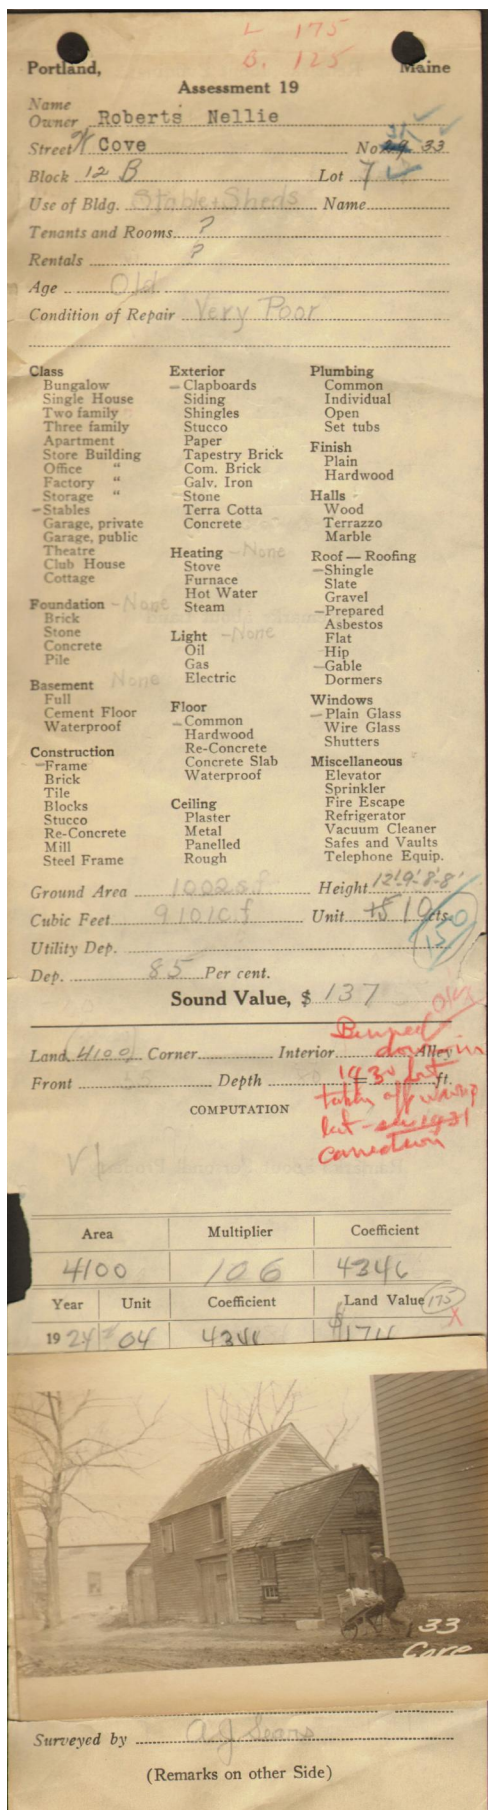 L 175
B. 125
Portland, Maine
Assessment 19
Name
Owner Roberts Nellie
Street Cove No 33
Block 12 B Lot 7
Use of Bldg. Stable + Sheds Name
Tenants and Rooms ?
Rentals ?
Age Old
Condition of Repair Very Poor
Class
Bungalow
Single House
Two family
Three family
Apartment
Store Building
Office "
Factory "
Storage "
- Stables
Garage, private
Garage, public
Theatre
Club House
Cottage
Foundation - None
Brick
Stone
Concrete
Pile
Basement None
Full
Cement Floor
Waterproof
Construction
- Frame
Brick
Tile
Blocks
Stucco
Re-Concrete
Mill
Steel Frame
Exterior
- Clapboards
Siding
Shingles
Stucco
Paper
Tapestry Brick
Com. Brick
Galv. Iron
Stone
Terra Cotta
Concrete
Heating - None
Stove
Furnace
Hot Water
Steam
Light - None
Oil
Gas
Electric
Floor
- Common
Hardwood
Re-Concrete
Concrete Slab
Waterproof
Ceiling
Plaster
Metal
Panelled
Rough
Plumbing
Common
Individual
Open
Set tubs
Finish
Plain
Hardwood
Halls
Wood
Terrazzo
Marble
Roof — Roofing
- Shingle
Slate
Gravel
- Prepared
Asbestos
Flat
Hip
- Gable
Dormers
Windows
- Plain Glass
Wire Glass
Shutters
Miscellaneous
Elevator
Sprinkler
Fire Escape
Refrigerator
Vacuum Cleaner
Safes and Vaults
Telephone Equip.
Ground Area 1002 s.f. Height 12'-9'-8'-8'
Cubic Feet 9101 c.f Unit 10 cts.
Utility Dep.
Dep. 85 Per cent.
Sound Value, $ 137
Land 4100 Corner Interior Alley
Front Depth = ft.
Burned
down in
1930 but
taken off wrong
lot - in 1931
correction
COMPUTATION
Area Multiplier Coefficient
4100 106 4346
Year Unit Coefficient Land Value 175
1924 04 4346 $174
33
Cove
Surveyed by A J Sears
(Remarks on other Side)